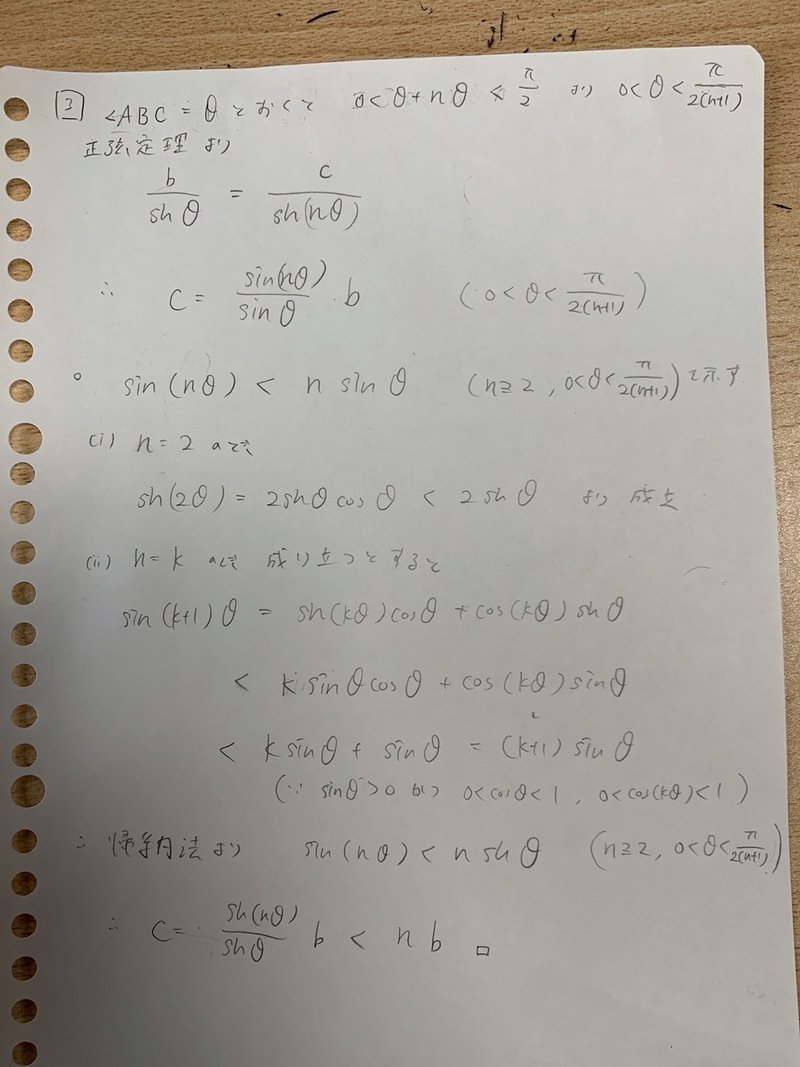 3 ∠ABC = θ とおくと 0<θ+nθ<π/2 より 0<θ<π/2(n+1)
正弦定理より
b/sinθ = c/sin(nθ)
∴ c = sin(nθ)/sinθ ・b (0<θ<π/2(n+1))
○ sin(nθ) < n sinθ (n≧2, 0<θ<π/2(n+1)) を示す
(i) n=2 のとき
sin(2θ) = 2sinθcosθ < 2sinθ より 成立
(ii) n=k のとき 成り立つとすると
sin(k+1)θ = sin(kθ)cosθ + cos(kθ)sinθ
< k sinθcosθ + cos(kθ)sinθ
< k sinθ + sinθ = (k+1) sinθ
(∵ sinθ>0 かつ 0<cosθ<1, 0<cos(kθ)<1)
∴ 帰納法より sin(nθ) < n sinθ (n≧2, 0<θ<π/2(n+1))
∴ c = sin(nθ)/sinθ b < n b □